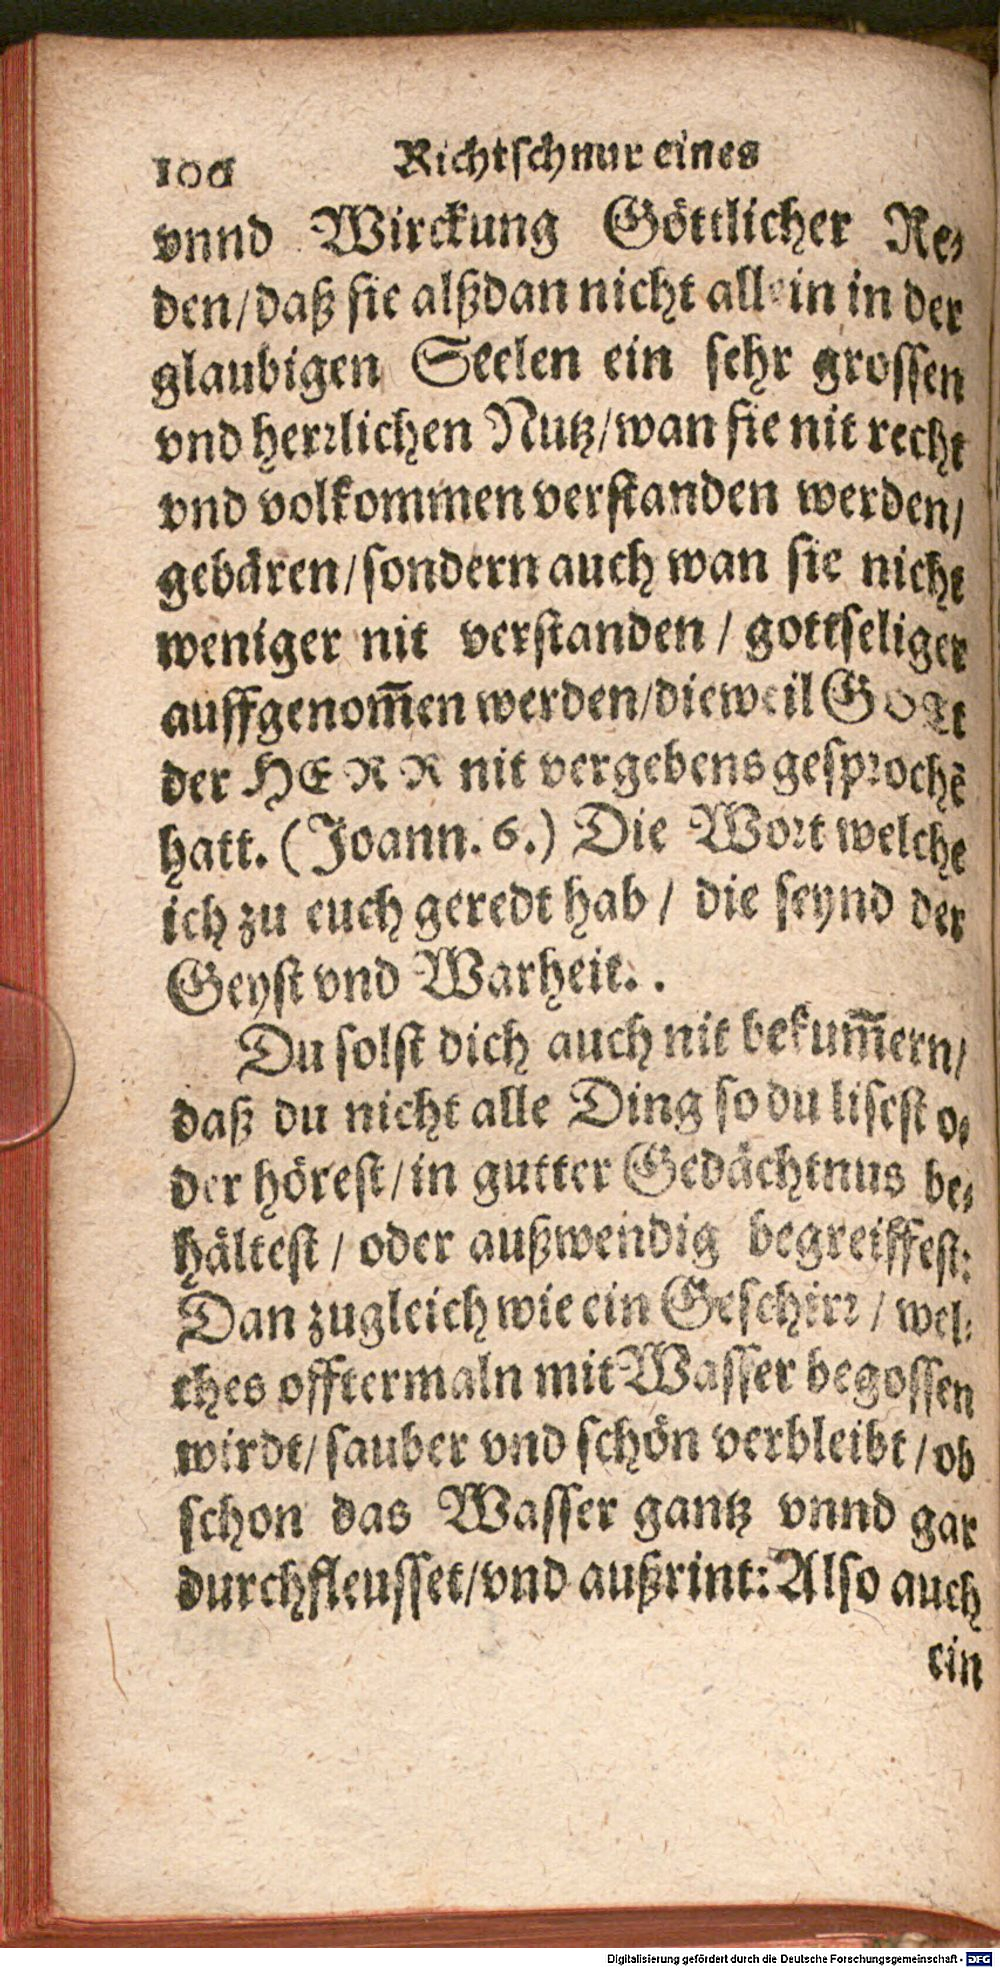 100 Richtschnur eines
vnnd Wirckung Göttlicher Re-
den/daß sie alßdan nicht allein in der
glaubigen Seelen ein sehr grossen
vnd herrlichen Nutz/wan sie nit recht
vnd volkommen verstanden werden/
gebären/sondern auch wan sie nicht
weniger nit verstanden / gottseliger
auffgenom̄en werden/dieweil GOtt
der HERR nit vergebens gesprochē
hatt. (Joann. 6.) Die Wort welche
ich zu euch geredt hab / die seynd der
Geyst vnd Warheit. .
Du solst dich auch nit bekum̄ern/
daß du nicht alle Ding so du lisest o-
der hörest/in gutter Gedächtnus be-
hältest / oder außwendig begreiffest:
Dan zugleich wie ein Geschirr / wel-
ches offtermaln mit Wasser begossen
wirdt/sauber vnd schön verbleibt / ob
schon das Wasser gantz vnnd gar
durchfleusset/vnd außrint: Also auch
ein
Digitalisierung gefördert durch die Deutsche Forschungsgemeinschaft - DFG